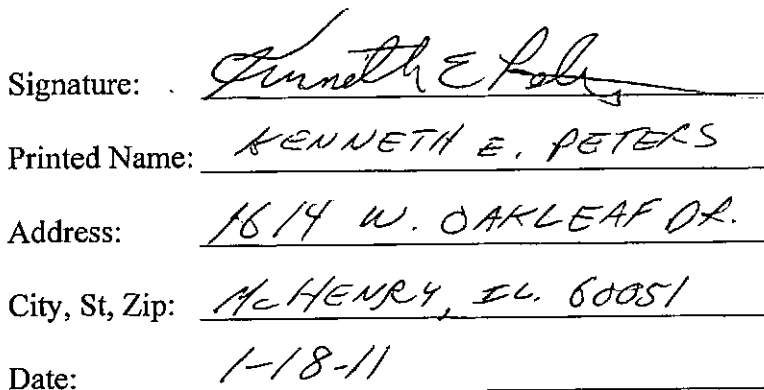 Signature: Kenneth E Peters
Printed Name: KENNETH E. PETERS
Address: 1614 W. OAKLEAF DR.
City, St, Zip: McHENRY, IL. 60051
Date: 1-18-11